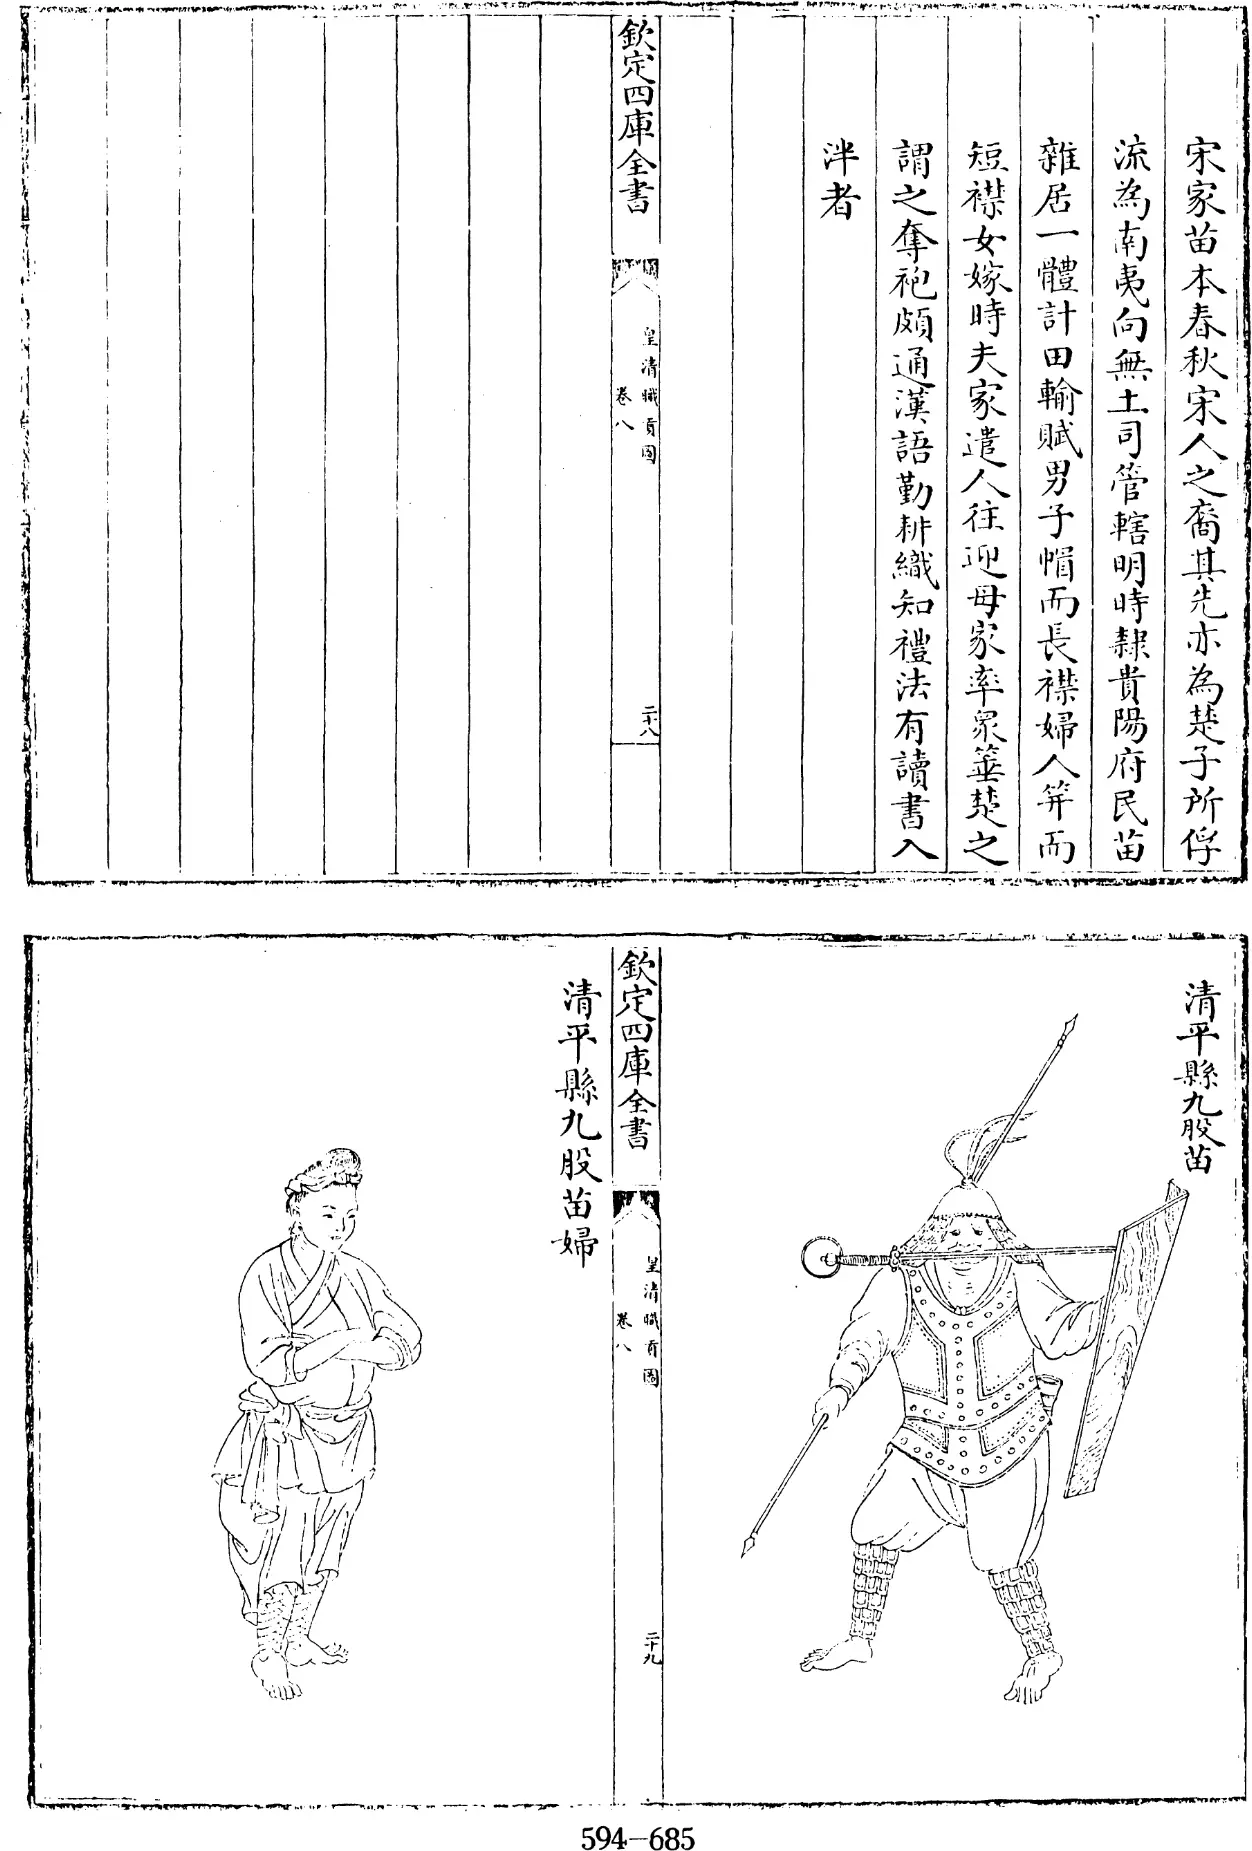 宋家苗本春秋宋人之裔其先亦為楚子所俘
流為南夷向無土司管轄明時隸貴陽府民苗
雜居一體計田輸賦男子帽而長襟婦人笄而
短襟女嫁時夫家遣人往迎母家率眾箠楚之
謂之奪袍頗通漢語勤耕織知禮法有讀書入
泮者
欽定四庫全書
皇清職貢圖
卷八
二十八
清平縣九股苗
欽定四庫全書
皇清職貢圖
卷八
二十九
清平縣九股苗婦
594-685